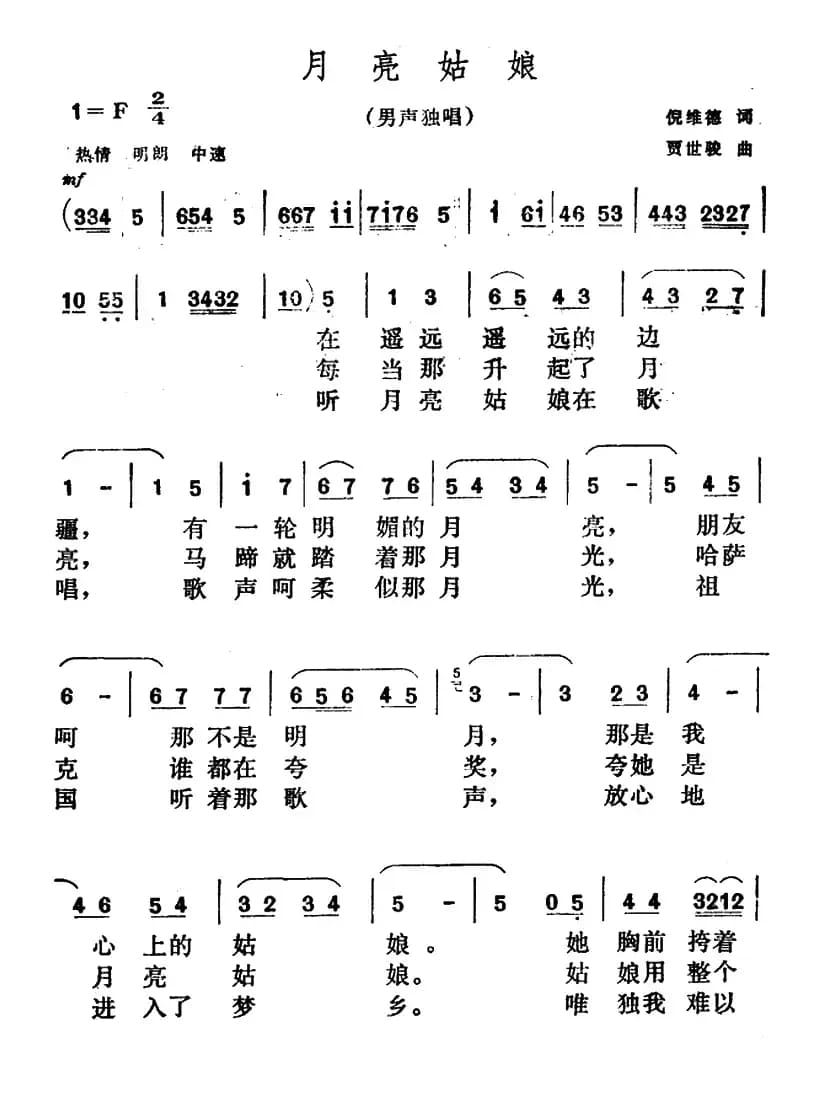 月亮姑娘
1=F 2/4
(男声独唱)
倪维德 词
贾世骏 曲
热情 明朗 中速
mf
(334 5 | 654 5 | 667 ii | 7i76 5 | i 6i | 46 53 | 443 2327 |
10 55 | 1 3432 | 10) 5 | 1 3 | 65 43 | 43 27 |
在 遥 远 遥 远的 边
每 当 那 升 起了 月
听 月 亮 姑 娘在 歌
1 - | 1 5 | i 7 | 67 76 | 54 34 | 5 - | 5 45 |
疆, 有 一 轮 明 媚的 月 亮, 朋友
亮, 马 蹄 就 踏 着那 月 光, 哈萨
唱, 歌 声 呵 柔 似那 月 光, 祖
6 - | 67 77 | 656 45 | 5 3 - | 3 23 | 4 - |
呵 那 不是 明 月, 那是 我
克 谁 都在 夸 奖, 夸她 是
国 听 着那 歌 声, 放心 地
46 54 | 32 34 | 5 - | 5 05 | 44 3212 |
心 上的 姑 娘。 她 胸前 挎着
月 亮 姑 娘。 姑 娘用 整个
进 入了 梦 乡。 唯 独我 难以